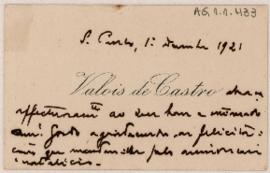 AG.1.1.433
S. Paulo, 1º dezembro 1921
Valois de Castro abraça
affectuosamte ao seu bom e
amº agradecendo as felicita
ções que mandou-lhe pelo anniversario
natalicio.